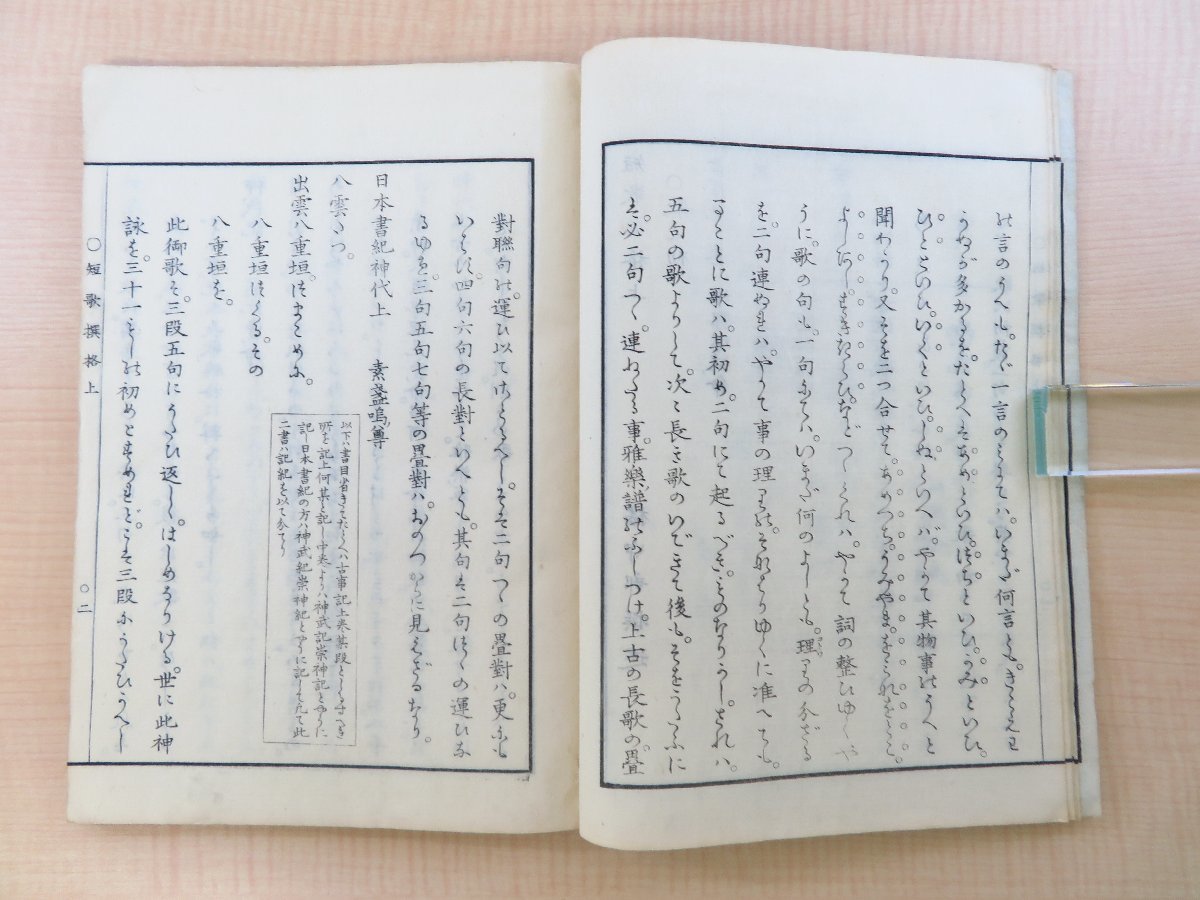 の言のうへも。たゞ一言のみにては。いまだ何言とも。きこえわ
うぬが多かるを。たとへはあめといひ。つちといひ。うみといひ。
ひとといひ。いくといひ。しぬといへば。やがて其物事のうへと
聞わかり。又そを二つ合せて。あめつち。うみやま。
やがて詞の整ひゆくや
うに。歌の句も。一句にては。いまだ何のよしとも。理りの分ざる
を。二句連ぬれば。やがて事の理りの。それはりゆくに准へても。
まことに歌は。其初め。二句にて起るべきものなりかし。されば。
五句の歌よりして。次々長き歌のいできて後も。そをうたふに
は。必二句つゝ。連ねたる事。雅樂譜のふしつけ。上古の長歌の畳
對聯句の。運び以てはかるべし。そは二句つゝの畳對は。更にも
いはず。四句六句の長對といへども。其句は二句つゝの運びな
るゆゑ。三句五句七句等の畳對は。おのつからに見えざるなり。
日本書紀神代上 素盞嗚尊
以下ハ書目省きて たとへハ古事記上某段としるすべき
所を記上何某と記し中巻よりハ神武記崇神記とやうに
記し日本書紀の方ハ神武紀崇神紀とやうに記したたて此
二書ハ記紀を以て分てり
八雲たつ。
出雲八重垣。つまこめに。
八重垣つくる。その
八重垣を。
此御歌は。三段五句にうたひ返し。はしめなりける。世に此神
詠を。三十一もじの初めとすめれど。こは三段にうたひうへし
〇短歌撰格上
〇二